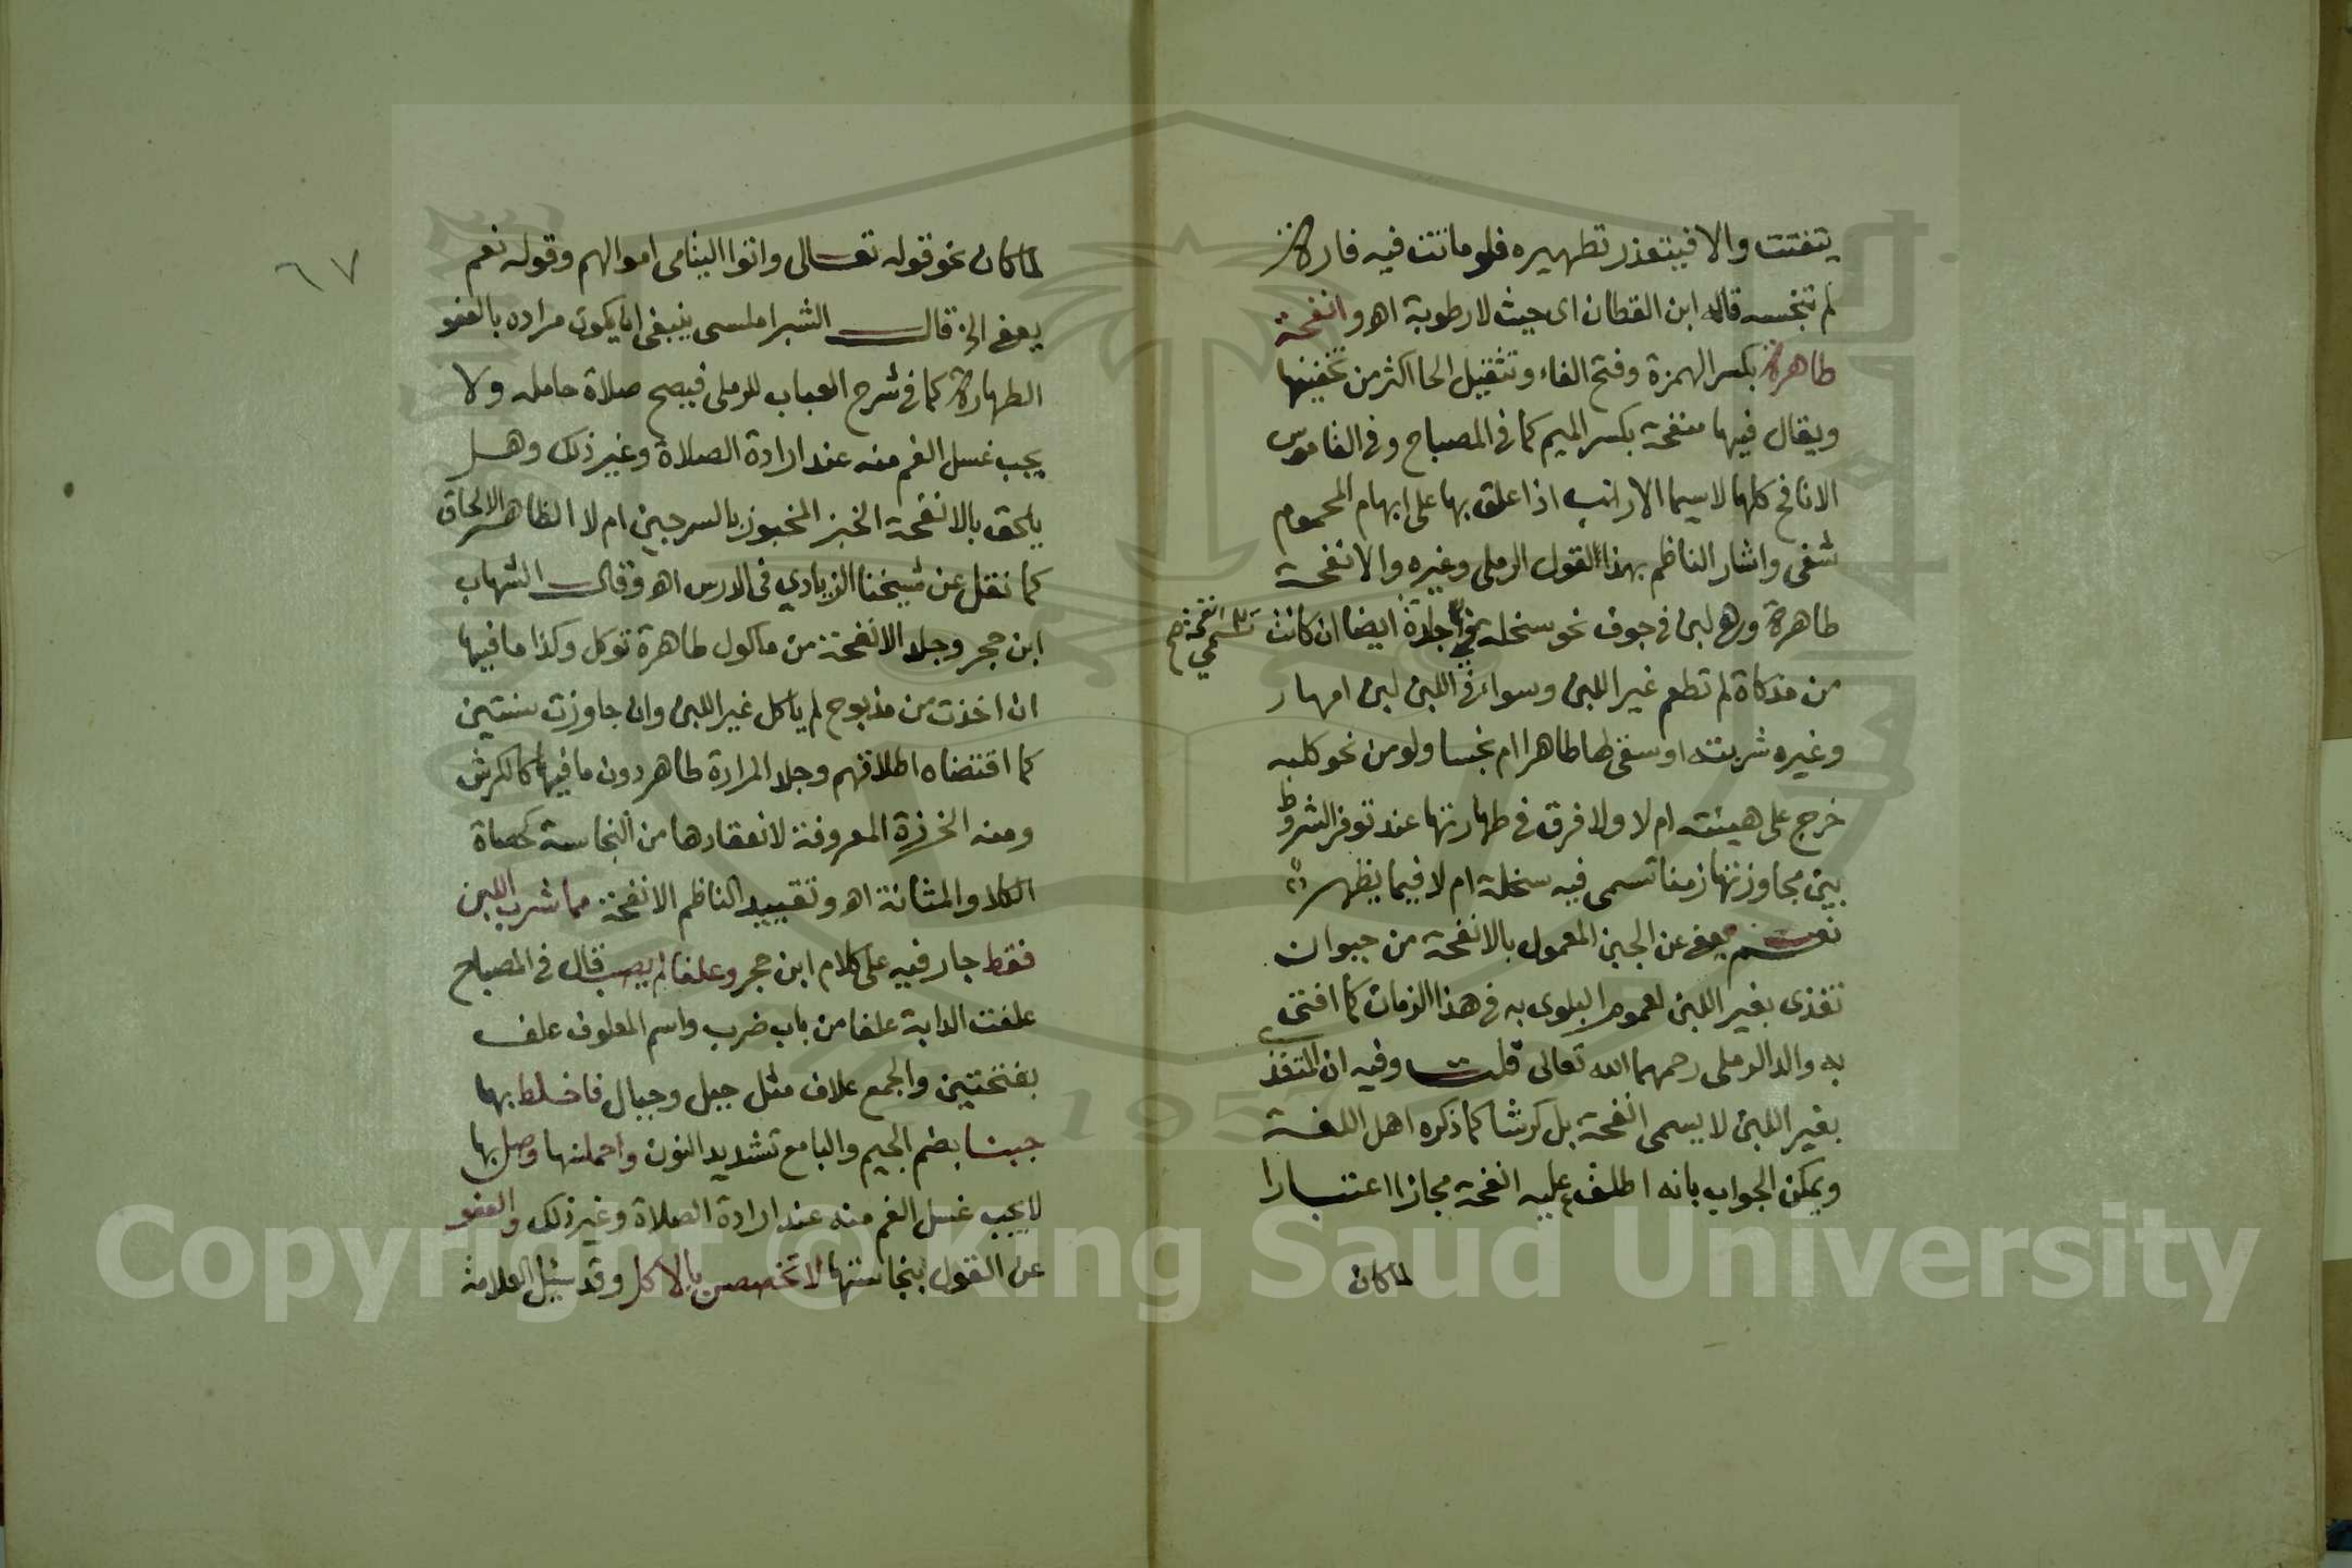 يتفتت والا فيتعذر تطهيره فلو ماتت فيه فارة
لم تنجسه قاله ابن القطان اى حيث لا رطوبة اهـ وانفحة
طاهرة بكسر الهمزة وفتح الفاء وتثقيل الحا اكثر من تخفيفها
ويقال فيها منفحة بكسر الميم كما فى المصباح وفى القاموس
الانافح كلها لا سيما الارانب اذا علق بها على ابهام المحموم
شفى واشار الناظم بهذا القول الرملى وغيره والانفحة
طاهرة وهى لبن فى جوف نحو سخلة فى جلدة ايضا ان كانت
تسمى انفحة صح
من مذكاة لم تطعم غير اللبن وسواء فى اللبن لبن امها ر
وغيره شربته او سقى لها طاهرا ام نجسا ولو من نحو كلبه
خرج على هيئته ام لا ولا فرق فى طهارتها عند توفر الشروط
بين مجاوزتها زمنا تسمى فيه سخلة ام لا فيما يظهر
نعم يعفى عن الجبن المعمول بالانفحة من حيوان
تغذى بغير اللبن لعموم البلوى به فى هذا الزمان كما افتى
به والد الرملى رحمهما الله تعالى قلت وفيه ان المتغذى
بغير اللبن لا يسمى انفحة بل كرشا كما ذكره اهل اللغة
ويمكن الجواب بانه اطلق عليه انفحة مجازا اعتبارا
لما كان
٦٧
لما كان نحو قوله تعالى واتوا اليتامى اموالهم وقوله نعم
يعفى الخ قال الشبراملسى ينبغى ان يكون مراده بالعفو
الطهارة كما فى شرح العباب للرملى فيصح صلاة حامله ولا
يجب غسل الفم منه عند ارادة الصلاة وغير ذلك وهل
يلحق بالانفحة الخبز المخبوز بالسرجين ام لا الظاهر الالحاق
كما نقل عن شيخنا الزيادي فى الدرس اهـ وقال الشهاب
ابن حجر وجلد الانفحة من ماكول طاهرة توكل وكذا ما فيها
ان اخذت من مذبوح لم ياكل غير اللبن وان جاوزت سنتين
كما اقتضاه اطلاقهم وجلد المرارة طاهر دون ما فيها كالكرش
ومنه الخرزة المعروفة لانعقادها من النجاسة كحصاة
الكلا والمثانة اهـ وتقييد الناظم الانفحة مما شرب اللبن
فقط جار فيه على كلام ابن حجر وعلفا لم يصب قال فى المصباح
علفت الدابة علفا من باب ضرب واسم المعلوف علف
بفتحتين والجمع علاف مثل جبل وجبال فاخلط بها
جبنا بضم الجيم والبا مع تشديد النون واحملنها وصل بها
لا يجب غسل الفم منه عند ارادة الصلاة وغير ذلك والعفو
عن القول بنجاستها لا تخصصن بالاكل وقد سئل العلامة
Copyright © King Saud University
1957